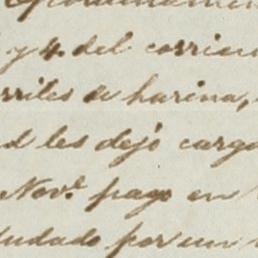 y 4. del corrien
rriles de harina,
d les dejó carga
Nov.e pago en
dudado por un